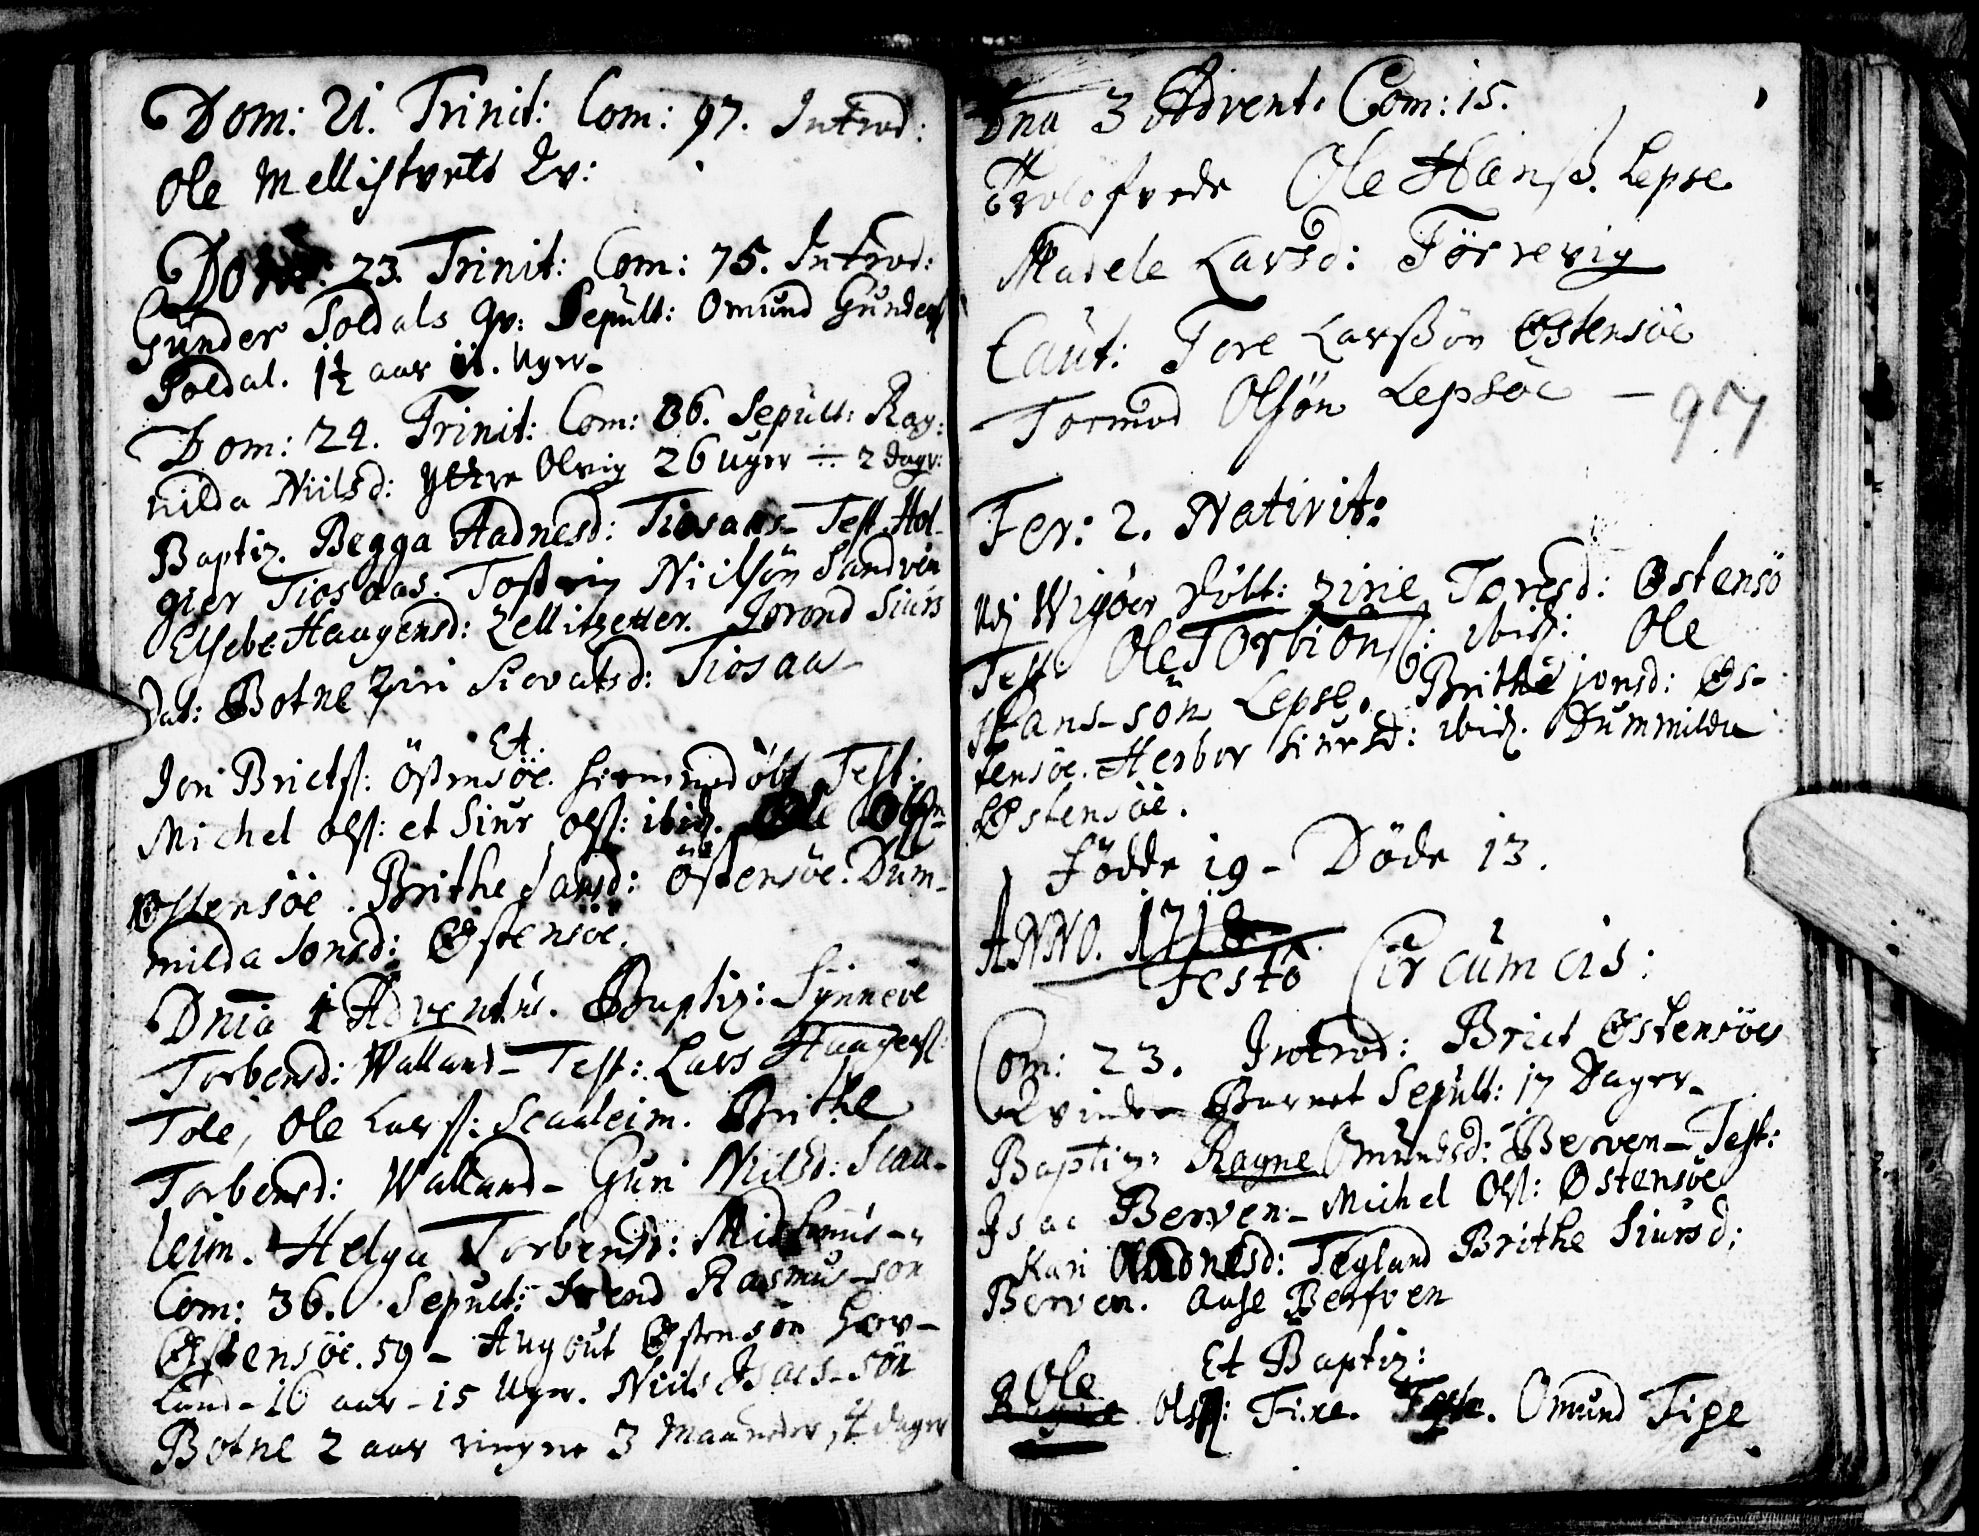 Dom: 21. Trinit: Com: 97. Introd:
Ole Mellistvets Qv:
Dom: 23. Trinit: Com: 75. Introd:
Gunder Soldals qv: Sepult: Omund Gunders
Soldal. 1½ aar 11. Uger-
Dom: 24. Trinit: Com: 36. Sepult: Rag:
nilda Niilsd: Yttre Olvig 26 uger ÷ 2 dage:
Baptiz. Begga Hadnesd: Tiosaas- Test. Hol-
gier Tiosaas. Niilsøn Sandven
Elsebe Haugensd: Jorond Siurs
Dat: Botne Ziri Siovatsd: Tiosaas
Et.
Jon Brictss: Östensöe. Test:
Michel olss: et Siur olss: ibid. Ole Olss:
Østensöe. Brithe Larsd: östensöe. Dum-
milda Jonsd: Østensöe.
Dnica 1 Adventus. Baptiz: Synneve
Torbensd: Walland- Test: Lars Haagenss:
Tole, Ole Larss: Scaaleim. Brithe
Torbensd: Walland- Guri Niilsd: Scaa-
leim. Helga Torbensd:
Com: 36. Sepult: Rasmus-son
Østensöe. 59 - Östensön
land- 16 aar - 15 Uger. Niils Isacs-sön
Botne 2 aar ringere 3 Maaneder, 4 dager
Dna 3 Advent. Com: 15.
Trolofvede Ole Hanss. Lepse
Madele Larsd: Förrevig
Caut: Tore Larssön Østensöe
Tormod Olsøn Lepsöe - 97
Fer: 2. Nativit:
Udj Wigöer Zirie Toresd: Ostensö
Test. Ole Torbiönss: ibid: Ole
Hans-sön Lepse. Brithe jonsd: Øs-
tensöe. Herbor Siursd: ibid. Dummilda
Østensöe.
Födde 19 - Döde 13.
ANNO. 1718
Festo Circumcis:
Com: 23. Introd: Brict Østensöes
qvinde Barnet Sepult: 17 Dager-
Baptiz: Ragne Omundsd: Berven- Test:
Isac Berven- Michel Olss: Østensöe
Kari Hadnesd: Tegland Brithe Siursd:
Berven. Aase Berfven
Et Baptiz:
Ole
Olss: Fixe. Teste. Omund Fixe